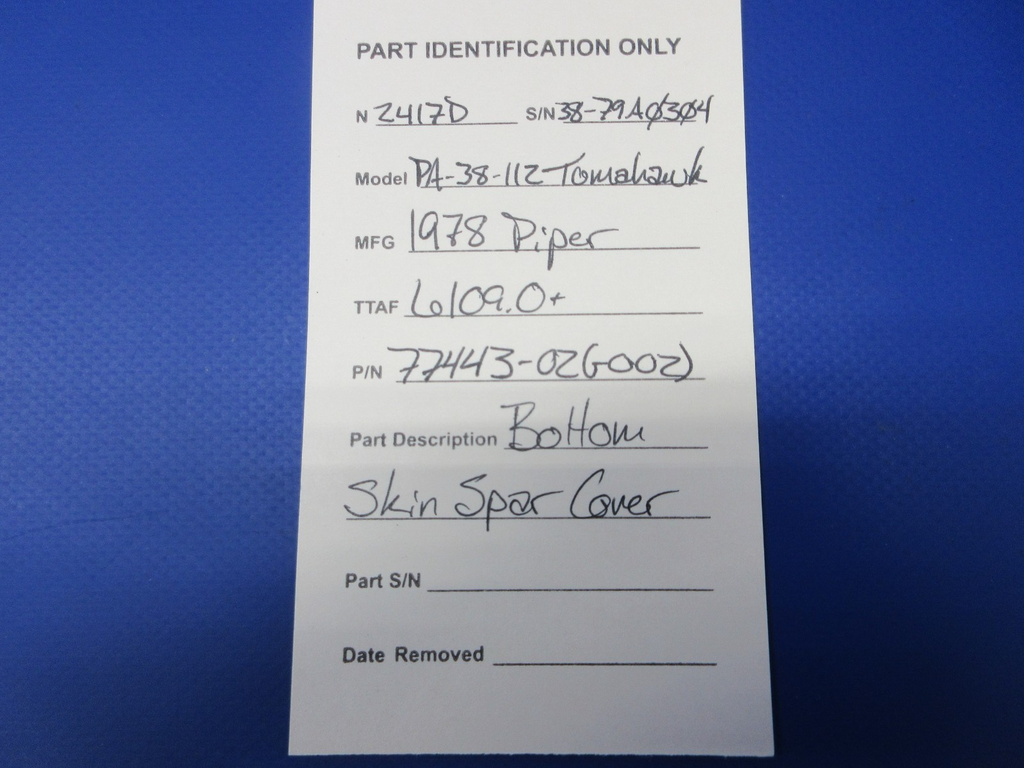 PART IDENTIFICATION ONLY
N 2417D S/N 38-79AØ3Ø4
Model PA-38-112 Tomahawk
MFG 1978 Piper
TTAF 6109.0+
P/N 77443-02(-002)
Part Description Bottom
Skin Spar Cover
Part S/N
Date Removed